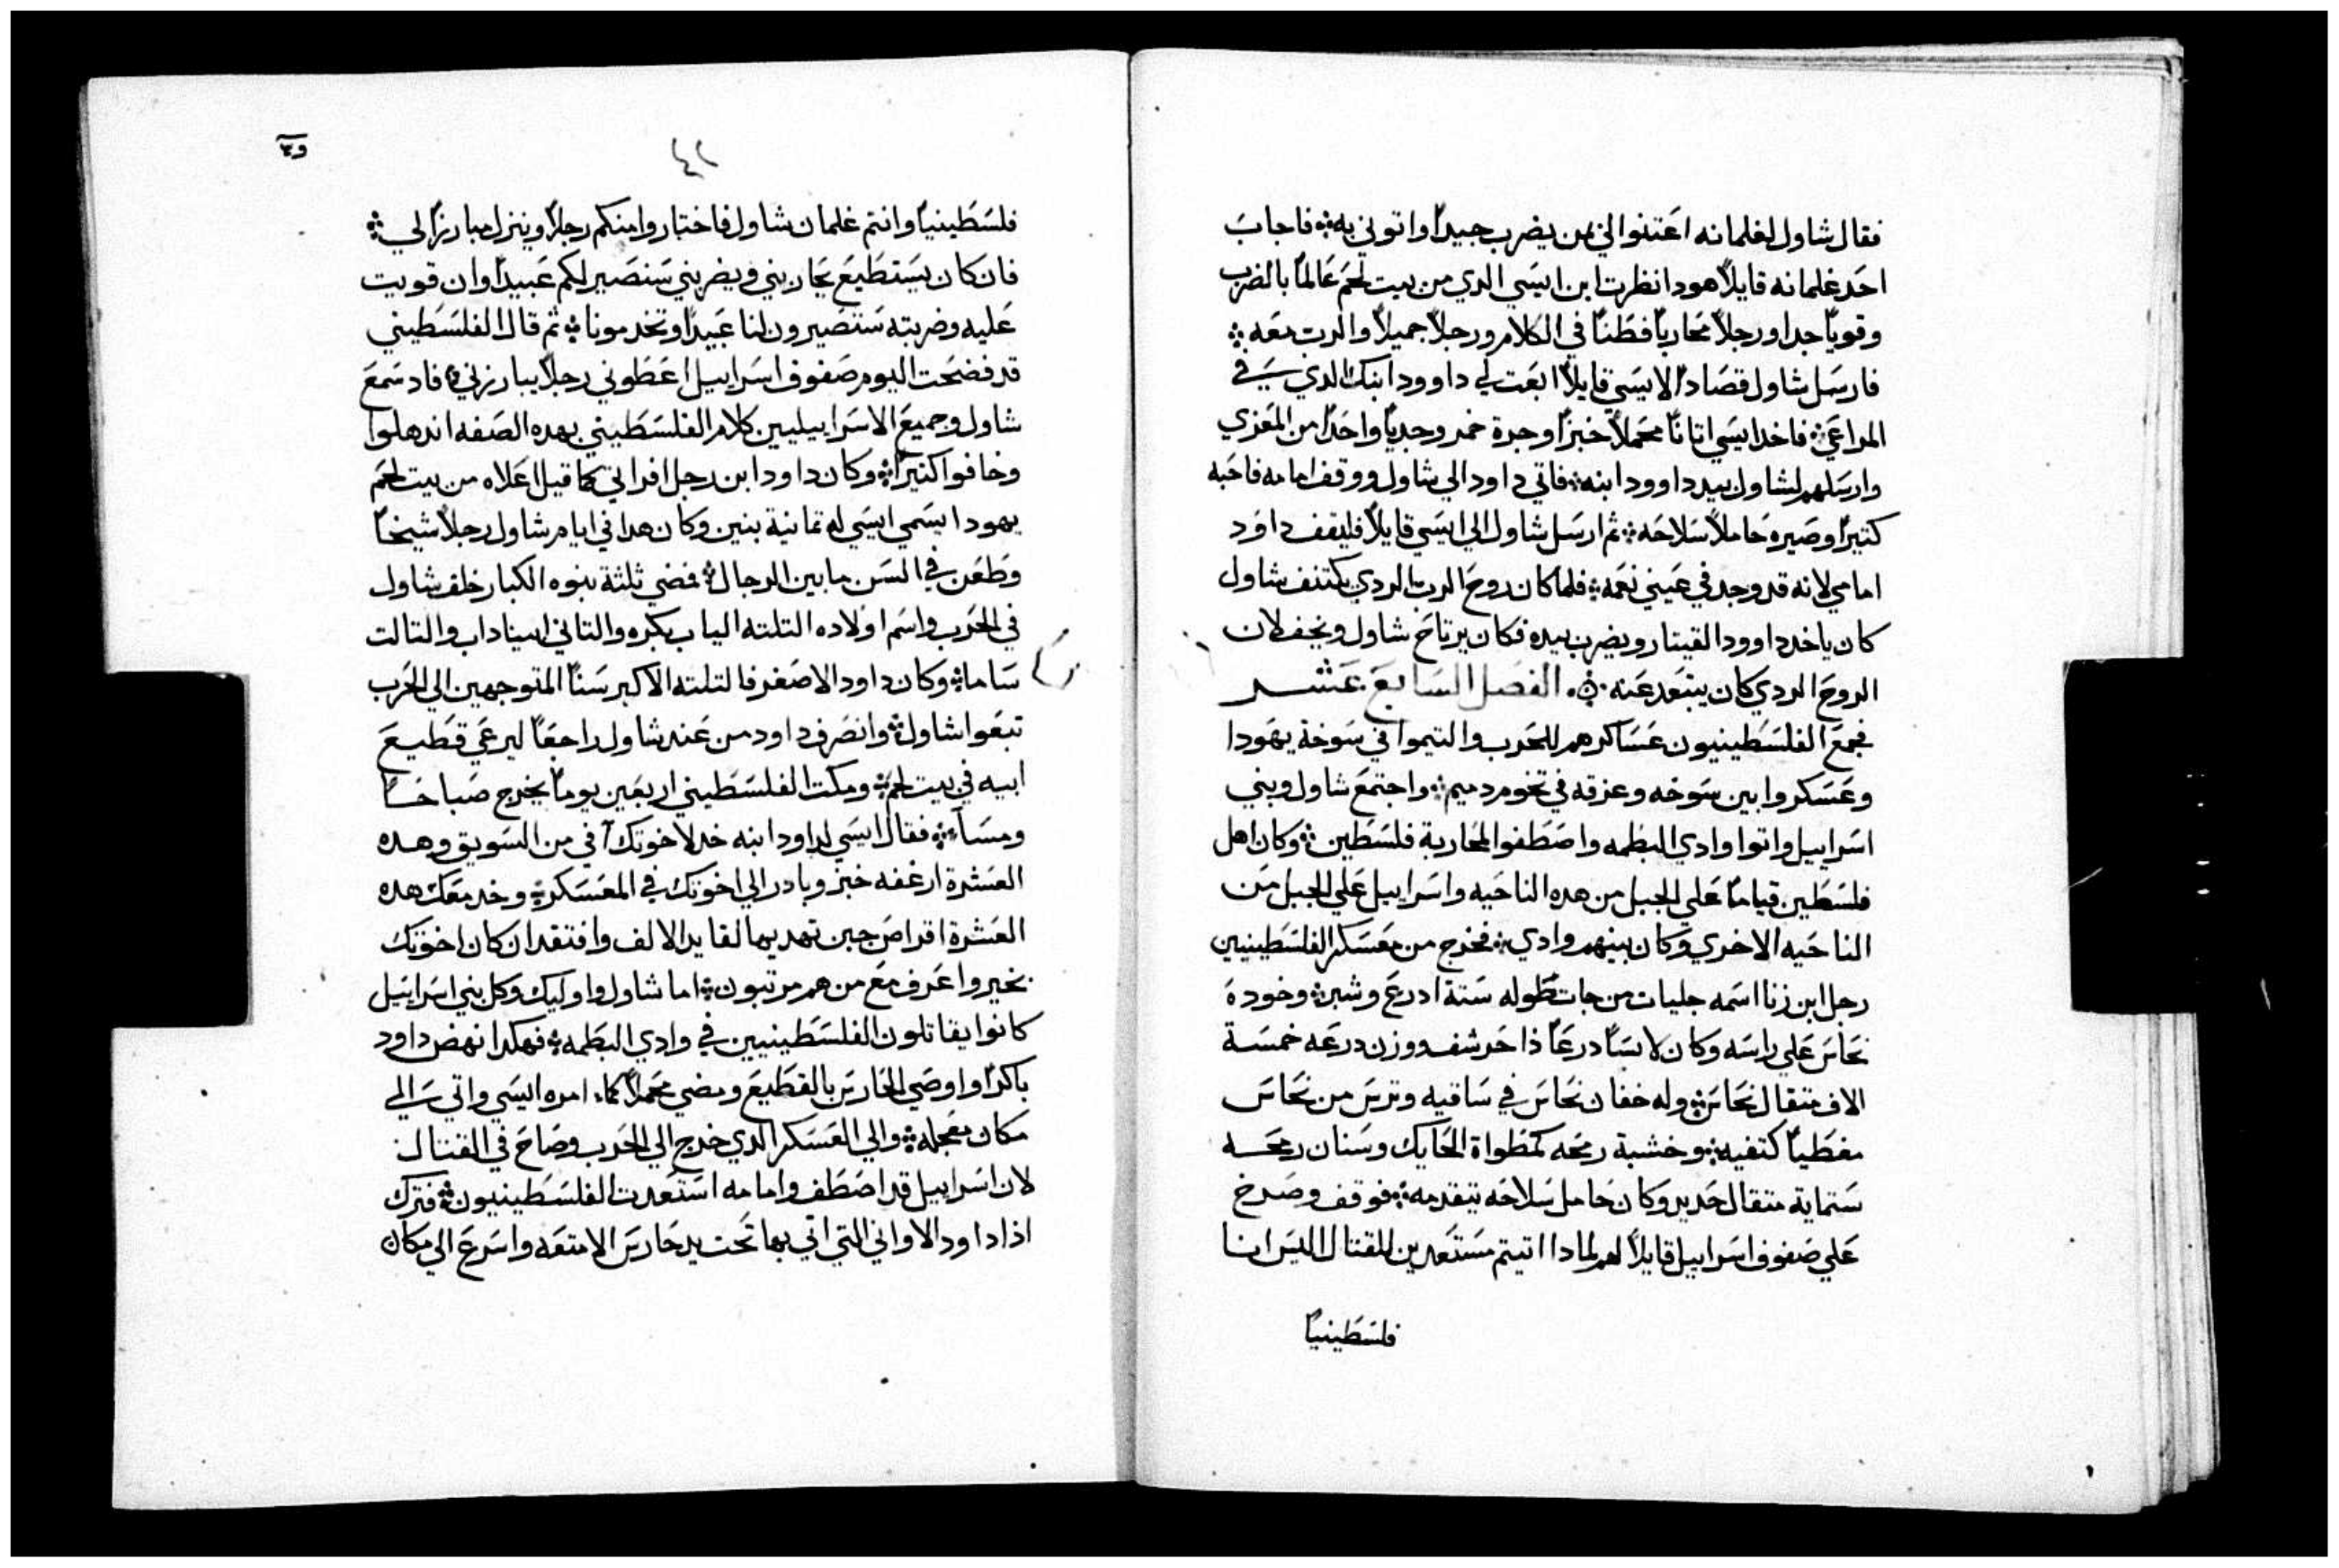 فقال شاول لغلمانه اعتنوا لي بمن يضرب جيداً واتوني به ፨ فاجاب
احد غلمانه قايلاً هودا نظرت ابن ايسي الدي من بيت لحم عالماً بالضرب
وقوياً جدا ورجلاً محارباً فطناً في الكلام ورجلاً جميلاً والرب معه ፨
فارسل شاول قصاداً لايسي قايلاً ابعت لي داوود ابنك الدي في
المراعي ፨ فاخد ايسي اتاناً محملاً خبزاً وجرة خمر وجدياً واحداً من المعزي
وارسلهم لشاول بيد داوود ابنه ፨ فاتي داود الي شاول ووقف امامه فاحبه
كثيراً وصيره حاملاً سلاحه ፨ ثم ارسل شاول الي ايسي قايلاً فليقف داود
امامي لانه قد وجد في عيني نعمه ፨ فلما كان روح الرب الردي يكتنف شاول
كان ياخد داوود القيتار ويضرب بيده فكان يرتاح شاول ويخف لان
الروح الردي كان يبتعد عنه ፨ الفصل السابع عشر
فجمع الفلسطينيون عساكرهم للحرب والتيموا في سوخة يهودا
وعسكروا بين سوخه وعزقه في تخوم دميم ፨ واجتمع شاول وبني
اسراييل واتوا وادي البطمه واصطفوا لمحاربة فلسطين ፨ وكان اهل
فلسطين قياماً علي الجبل من هده الناحيه واسراييل علي الجبل من
الناحيه الاخري وكان بينهم وادي ፨ فخرج من معسكر الفلسطينيين
رجل ابن زنا اسمه جليات من جات طوله ستة ادرع وشبر ፨ وخودة
نحاس علي راسه وكان لابساً درعاً ذا حرشف ووزن درعه خمسة
الاف متقال نحاس ፨ وله خفان نحاس في ساقيه وترس من نحاس
مغطياً كتفيه ፨ وخشبة رمحه كمطواة الحايك وسنان رمحه
ستماية متقال حديد وكان حامل سلاحه يتقدمه ፨ فوقف وصرخ
علي صفوف اسراييل قايلاً لهم لمادا اتيتم مستعدين للقتال اليس انا
فلسطينياً
٤٢
فلسطينياً وانتم غلمان شاول فاختاروا منكم رجلاً وينزل مبارزاً لي ፨
فان كان يستطيع يحاربني ويضربني سنصير لكم عبيداً وان قويت
عليه وضربته ستصيرون لنا عبيداً وتخدمونا ፨ ثم قال الفلسطيني
قد فضحت اليوم صفوف اسراييل اعطوني رجلاً يبارزني ፨ فاد سمع
شاول وجميع الاسراييليين كلام الفلسطيني بهده الصفه اندهلوا
وخافوا كتيراً ፨ وكان داود ابن رجل افراتي كما قيل اعلاه من بيت لحم
يهودا يسمي ايسي له تمانية بنين وكان هدا في ايام شاول رجلاً شيخاً
وطعن في السن ما بين الرجال ፨ فمضي ثلثة بنوه الكبار خلف شاول
في الحرب واسم اولاده التلته الياب بكره والتاني ابيناداب والتالت
ساما ፨ وكان داود الاصغر فالتلته الاكبر سناً المتوجهين الي الحرب
تبعوا شاول ፨ وانصرف داود من عند شاول راجعاً ليرعي قطيع
ابيه في بيت لحم ፨ ومكت الفلسطيني اربعين يوماً يخرج صباحاً
ومسآء ፨ فقال ايسي لداود ابنه خد لاخوتك آفي من السويق وهده
العشرة ارغفه خبز وبادر الي اخوتك في المعسكر ፨ وخد معك هده
العشرة اقراص جبن تهديها لقايد الالف وافتقد ان كان اخوتك
بخير واعرف مع من هم مرتبون ፨ اما شاول واوليك وكل بني اسراييل
كانوا يقاتلون الفلسطينيين في وادي البطمه ፨ فهكدا نهض داود
باكراً واوصي الحارس بالقطيع ومضي محملاً كما امره ايسي واتي الي
مكان مجله ፨ والي العسكر الدي خرج الي الحرب وصاح في القتال
لان اسراييل قد اصطف وامامه استعدت الفلسطينيون ፨ فترك
اذا داود الاواني التي اتي بها تحت يد حارس الامتعه واسرع الي مكان